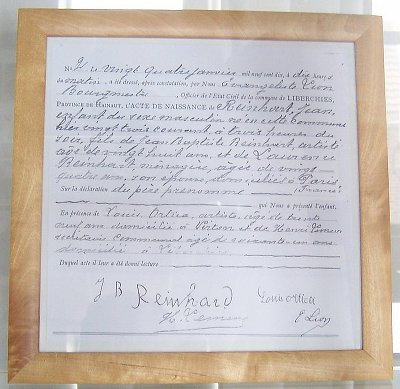 No 2 Le vingt quatre janvier mil neuf cent dix, à dix heures du
matin, a été dressé, après constatation, par Nous Évangéliste Lion
Bourgmestre, Officier de l'Etat Civil de la commune de LIBERCHIES,
PROVINCE DE HAINAUT, L'ACTE DE NAISSANCE de Reinhart, Jean,
enfant du sexe masculin né en cette commune
hier vingt trois courant à trois heures du
soir, fils de Jean Baptiste Reinhart, artiste
âgé de vingt huit ans, et de Laurence
Reinhart ménagère, âgée de vingt
quatre ans, son épouse, domiciliés à Paris
Sur la déclaration du père prénommé (France)
qui Nous a présenté l'enfant.
En présence de Louis artiste, âgé de trente
neuf ans domicilié à et de Henri
secrétaire communal âgé de soixante un ans
domicilié à
Duquel acte il leur a été donné lecture
J B Reinhard
E Lion